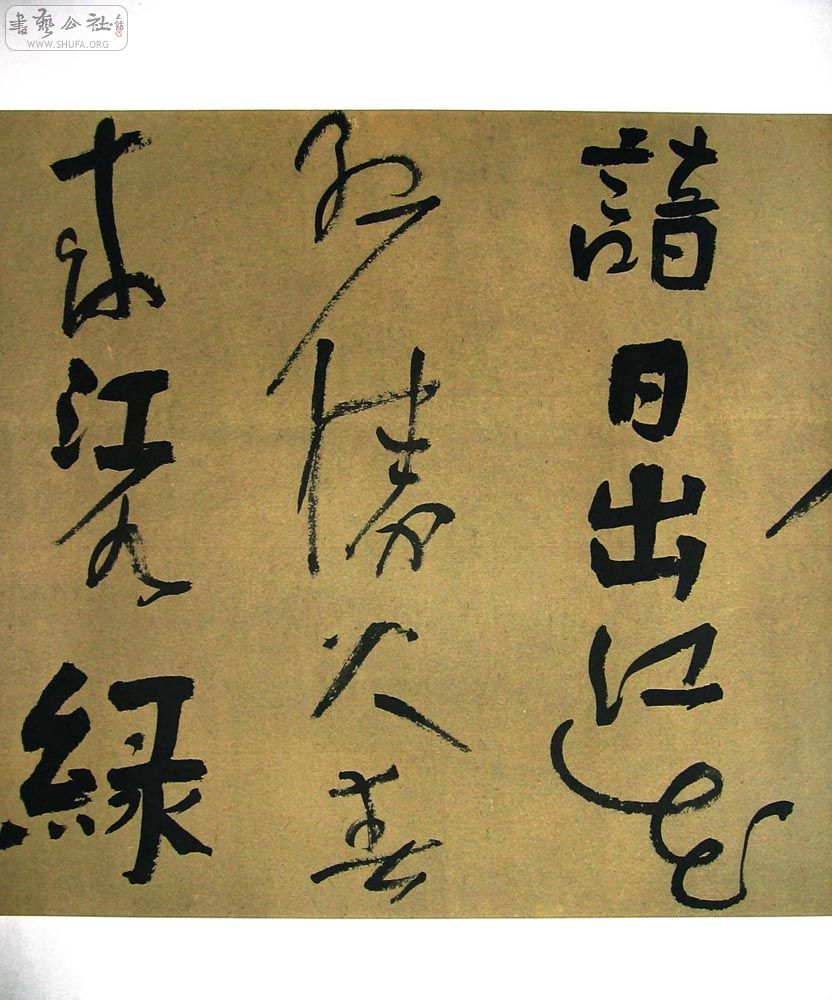 書藝公社
WWW.SHUFA.ORG
諳日出江花
紅勝火春
來江水綠